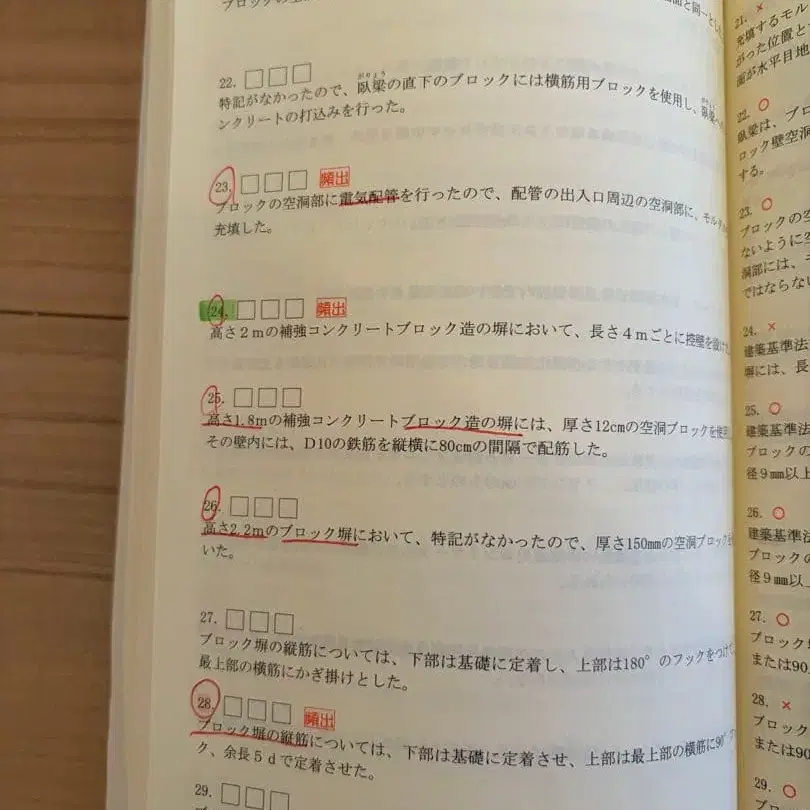 22. □□□
特記がなかったので、臥梁の直下のブロックには横筋用ブロックを使用し、臥梁へ
がりょう
ンクリートの打込みを行った。
23. □□□ 頻出
ブロックの空洞部に電気配管を行ったので、配管の出入口周辺の空洞部に、モルタル
充填した。
24. □□□ 頻出
高さ2mの補強コンクリートブロック造の塀において、長さ4mごとに控壁を設け
25. □□□
高さ1.8mの補強コンクリートブロック造の塀には、厚さ12cmの空洞ブロックを使
その壁内には、D10の鉄筋を縦横に80cmの間隔で配筋した。
26. □□□
高さ2.2mのブロック塀において、特記がなかったので、厚さ150mmの空洞ブロック
いた。
27. □□□
ブロック塀の縦筋については、下部は基礎に定着し、上部は180°のフックをつけ
最上部の横筋にかぎ掛けとした。
28. □□□ 頻出
ブロック塀の縦筋については、下部は基礎に定着させ、上部は最上部の横筋に90°
ク、余長5dで定着させた。
29. □□□
21. ×
充填するモル
がった位置と
面が水平目地
22. ○
臥梁は、ブロ
ロック壁空洞
する。
23. ○
ブロックの空
ないように空
洞部には、
ではならない
24. ×
建築基準法
塀には、長
25. ○
建築基準法
ブロックの
径9mm以上
26. ○
建築基準法
ブロックの
径9mm以上
27. ○
ブロック塀
または90
28. ×
ブロック
または90
29. ○